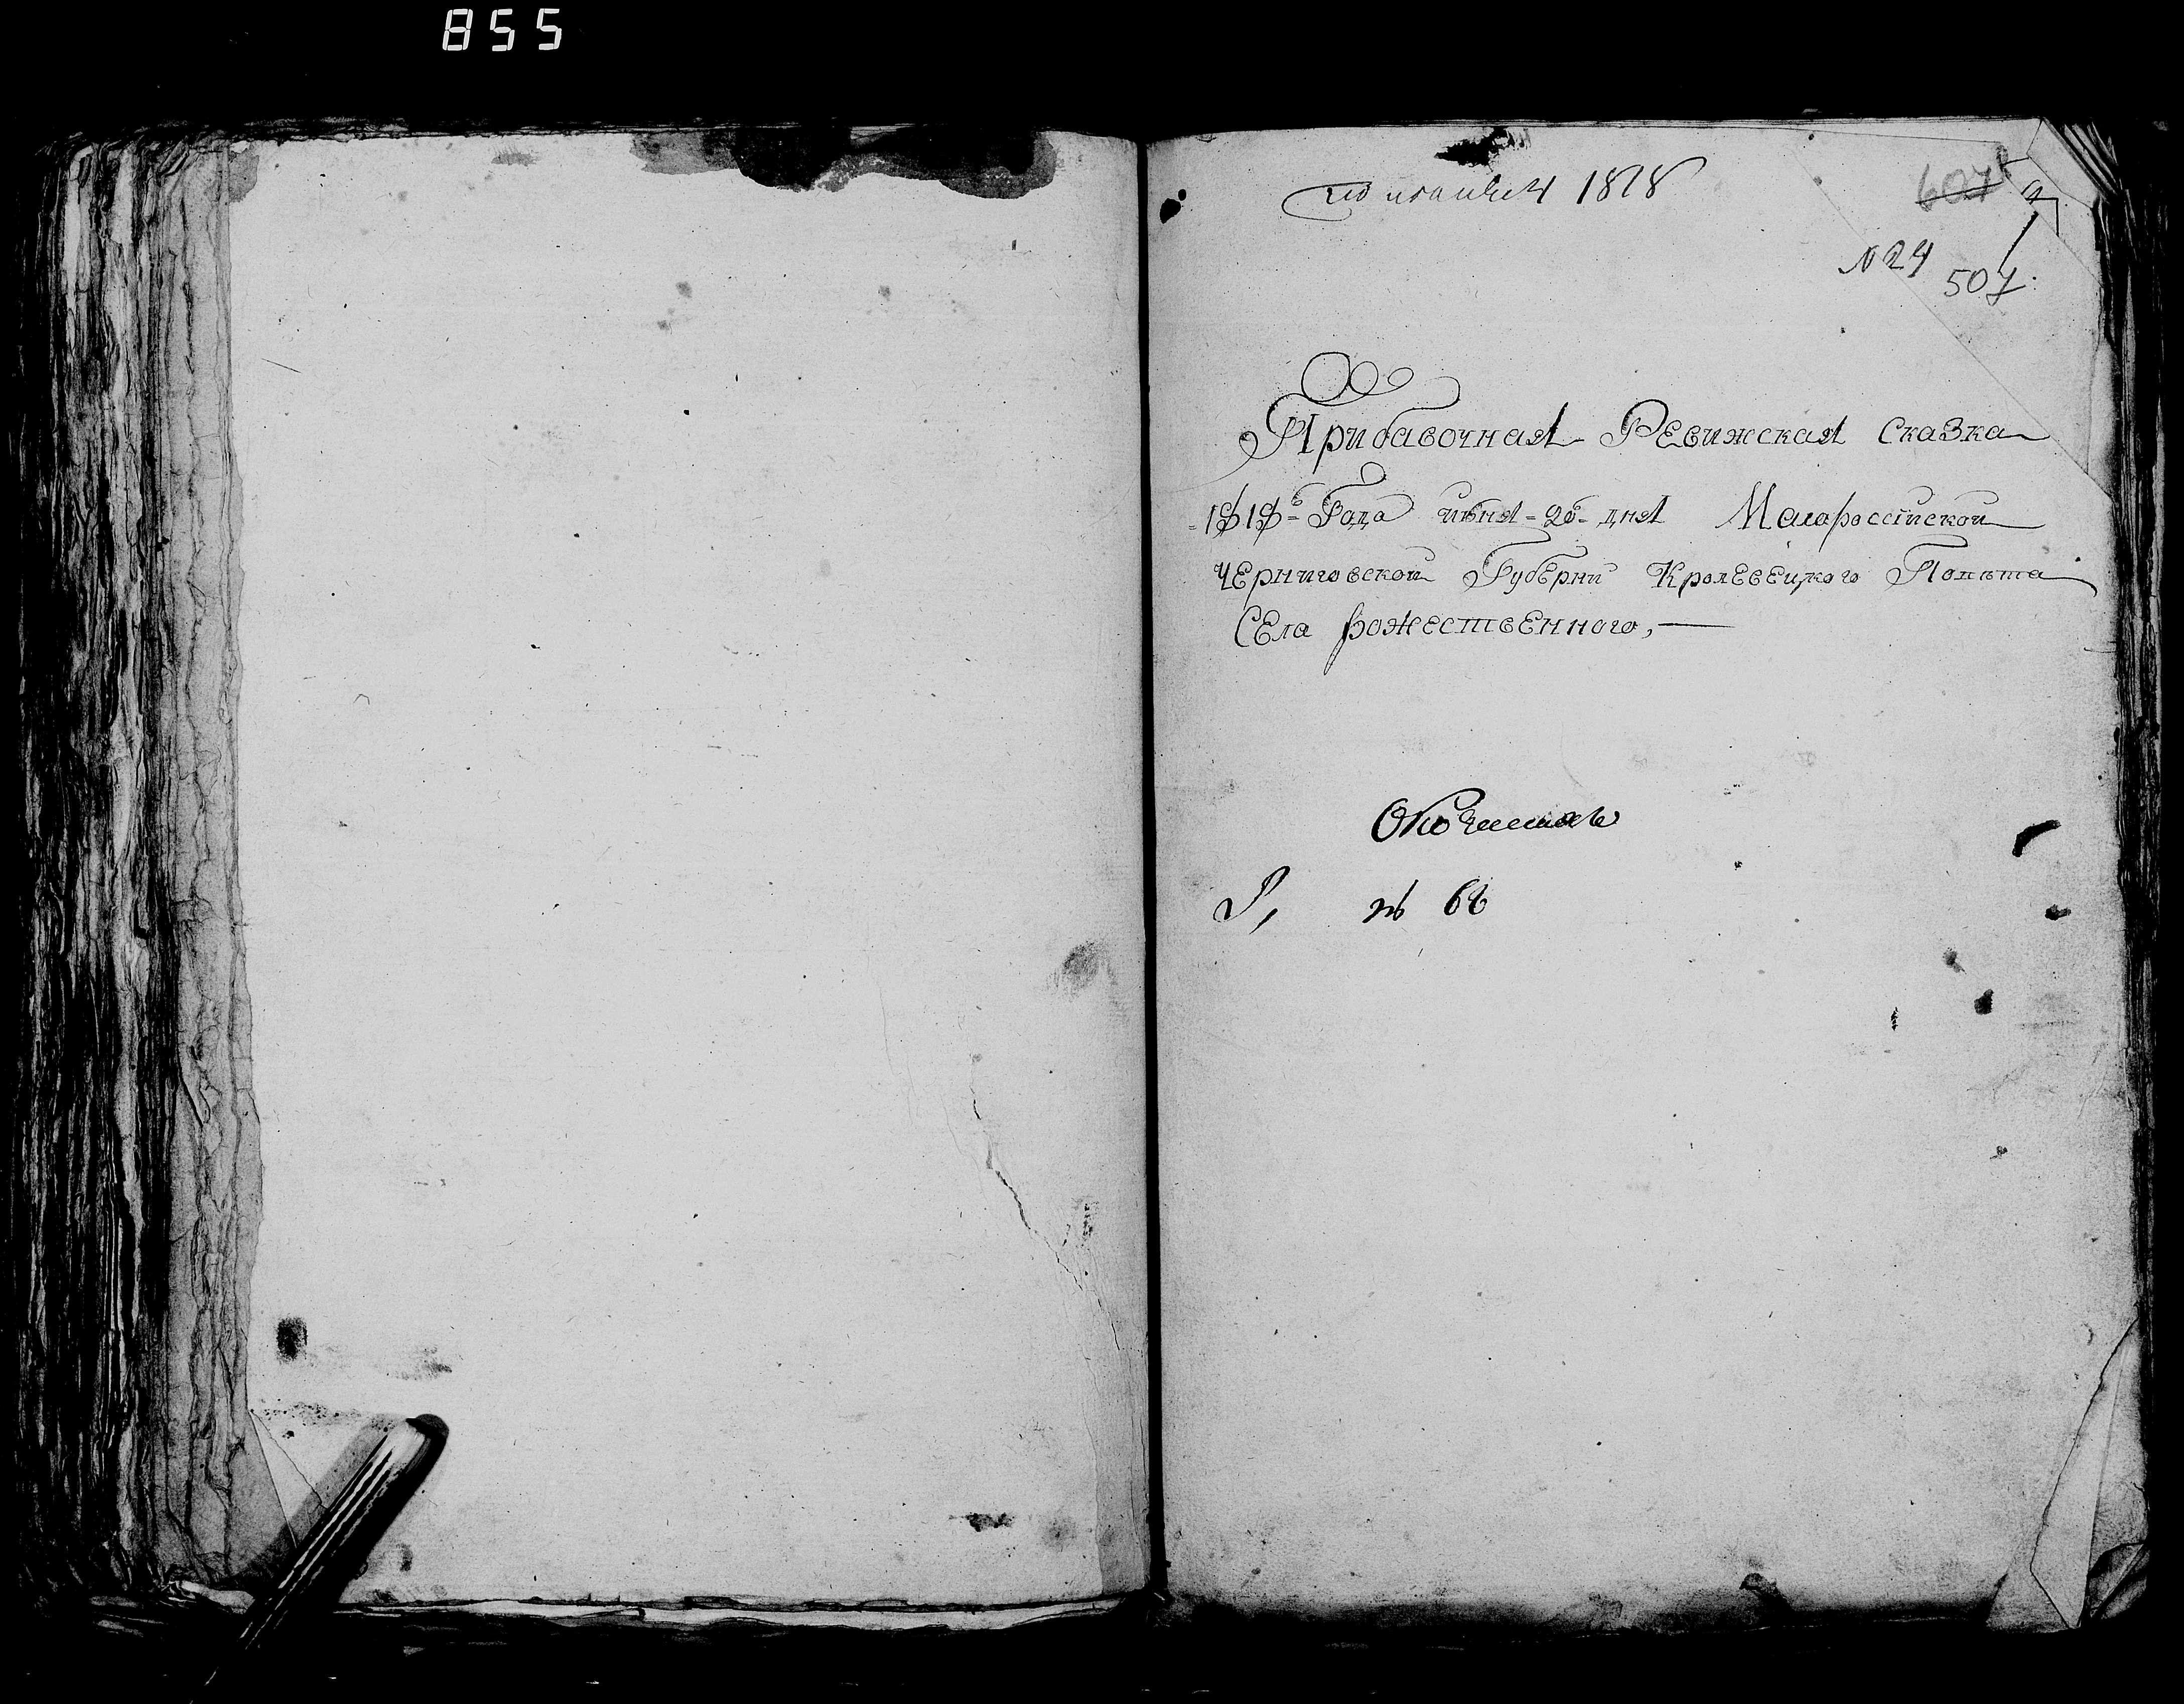 855
1818
607
N 24
507.
Прибавочная Ревижская сказка
1818го Года июня 20 дня Малоросciйской
Черниговской Губерни Кролевецкого Повѣта
Села рожественного,
№ 66